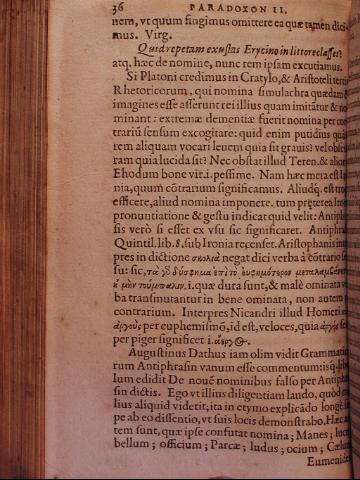 36 PARADOXON II.
nem, vt quum fingimus omittere ea quæ tamen dici-
mus. Virg.
Quid repetam exustas Erycino in littore classes?
atq. hæc de nomine, nunc rem ipsam excutiamus.
Si Platoni credimus in Cratylo, & Aristoteli tertio
Rhetoricorum, qui nomina simulachra quædam &
imagines esse asserunt rei illius quam imitātur & no
minant: extremæ dementiæ fuerit nomina per con
trariū sensum excogitare: quid enim putidius quā
rem aliquam vocari leuem quia sit grauis? vel obscu
ram quia lucida sit? Nec obstat illud Teren. & alior
Ehodum bone vir. i. pessime. Nam hæc mera est Iro
nia, quum cōtrarium significamus. Aliudq. est trop
efficere, aliud nomina imponere. tum prȩterea Iro
pronuntiatione & gestu indicat quid velit: Antiphra
sis vero si esset ex vsu sic significaret. Antiphra
Quintil. lib. 8. sub Ironia recenset. Aristophanis inter
pres in dictione σκολιὰ negat dici verba à cōtrario
su: sic, τὰ δύσφημα ἐπὶ τὸ εὐφημότερον
i. quæ dura sunt, & male ominata ver
ba transmutantur in bene ominata, non autem
contrarium. Interpres Nicandri illud Homeri
ἀργοὺς per euphemismō, id est, veloces, quia
per piger significet i. ἀεργ
Augustinus Dathus iam olim vidit Grammatico
rum Antiphrasin vanum esse commentum: is q. libel
lum edidit De nouē nominibus falso per Antiphra
sin dictis. Ego vt illius diligentiam laudo, quòd
lius aliquid viderit; ita in etymo explicādo longè
pe ab eo dissentio, vt suis locis demonstrabo. Hæc au
tem sunt, quæ ipse confutat nomina; Manes; lucus
bellum; officium; Parcæ; ludus; ocium; Cœlum
Eumenide